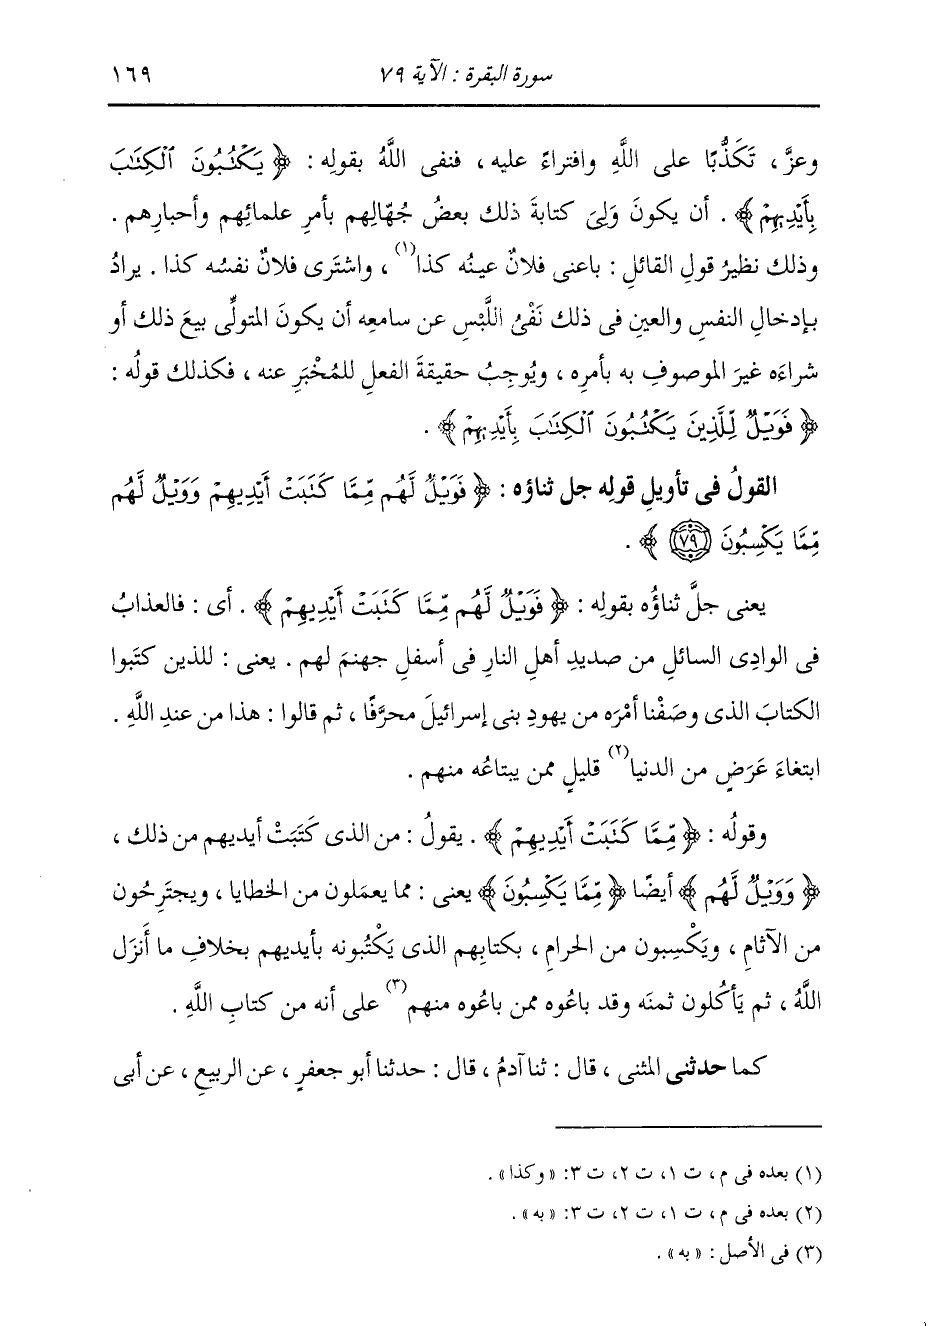 سورة البقرة : الآية ٧٩ ١٦٩
وعزَّ ، تَكَذُّبًا على اللَّهِ وافتراءً عليه ، فنفى اللَّهُ بقولِه : ﴿ يَكْتُبُونَ ٱلْكِتَٰبَ
بِأَيْدِيهِمْ ﴾ . أن يكونَ وَلِىَ كتابةَ ذلك بعضُ جُهّالِهم بأمرِ علمائِهم وأحبارِهم .
وذلك نظيرُ قولِ القائلِ : باعنى فلانٌ عينُه كذا(١) ، واشترى فلانٌ نفسُه كذا . يرادُ
بإدخالِ النفسِ والعينِ فى ذلك نَفْىُ اللَّبْسِ عن سامعِه أن يكونَ المتولِّى بيعَ ذلك أو
شراءَه غيرَ الموصوفِ به بأمرِه ، ويُوجِبُ حقيقةَ الفعلِ للمُخْبَرِ عنه ، فكذلك قولُه :
﴿ فَوَيْلٌ لِّلَّذِينَ يَكْتُبُونَ ٱلْكِتَٰبَ بِأَيْدِيهِمْ ﴾ .
القولُ فى تأويلِ قولِه جل ثناؤه : ﴿ فَوَيْلٌ لَّهُم مِّمَّا كَتَبَتْ أَيْدِيهِمْ وَوَيْلٌ لَّهُم
مِّمَّا يَكْسِبُونَ ٧٩ ﴾ .
يعنى جلَّ ثناؤُه بقولِه : ﴿ فَوَيْلٌ لَّهُم مِّمَّا كَتَبَتْ أَيْدِيهِمْ ﴾ . أى : فالعذابُ
فى الوادِى السائلِ من صديدِ أهلِ النارِ فى أسفلِ جهنمَ لهم . يعنى : للذين كتَبوا
الكتابَ الذى وصَفْنا أمْرَه من يهودِ بنى إسرائيلَ محرَّفًا ، ثم قالوا : هذا من عندِ اللَّهِ .
ابتغاءَ عَرَضٍ من الدنيا(٢) قليلٍ ممن يبتاعُه منهم .
وقولُه : ﴿ مِّمَّا كَتَبَتْ أَيْدِيهِمْ ﴾ . يقولُ : من الذى كَتَبَتْ أيديهم من ذلك ،
﴿ وَوَيْلٌ لَّهُم ﴾ أيضًا ﴿ مِّمَّا يَكْسِبُونَ ﴾ يعنى : مما يعمَلون من الخطايا ، ويجتَرِحُون
من الآثامِ ، ويَكْسِبون من الحرامِ ، بكتابِهم الذى يَكْتُبونه بأيديهم بخلافِ ما أَنزَل
اللَّهُ ، ثم يَأكُلون ثمنَه وقد باعُوه ممن باعُوه منهم(٣) على أنه من كتابِ اللَّهِ .
كما حدثنى المثنى ، قال : ثنا آدمُ ، قال : حدثنا أبو جعفرٍ ، عن الربيعِ ، عن أبى
(١) بعده فى م، ت ١، ت ٢، ت ٣: «وكذا» .
(٢) بعده فى م، ت ١، ت ٢، ت ٣: «به» .
(٣) فى الأصل : «به» .